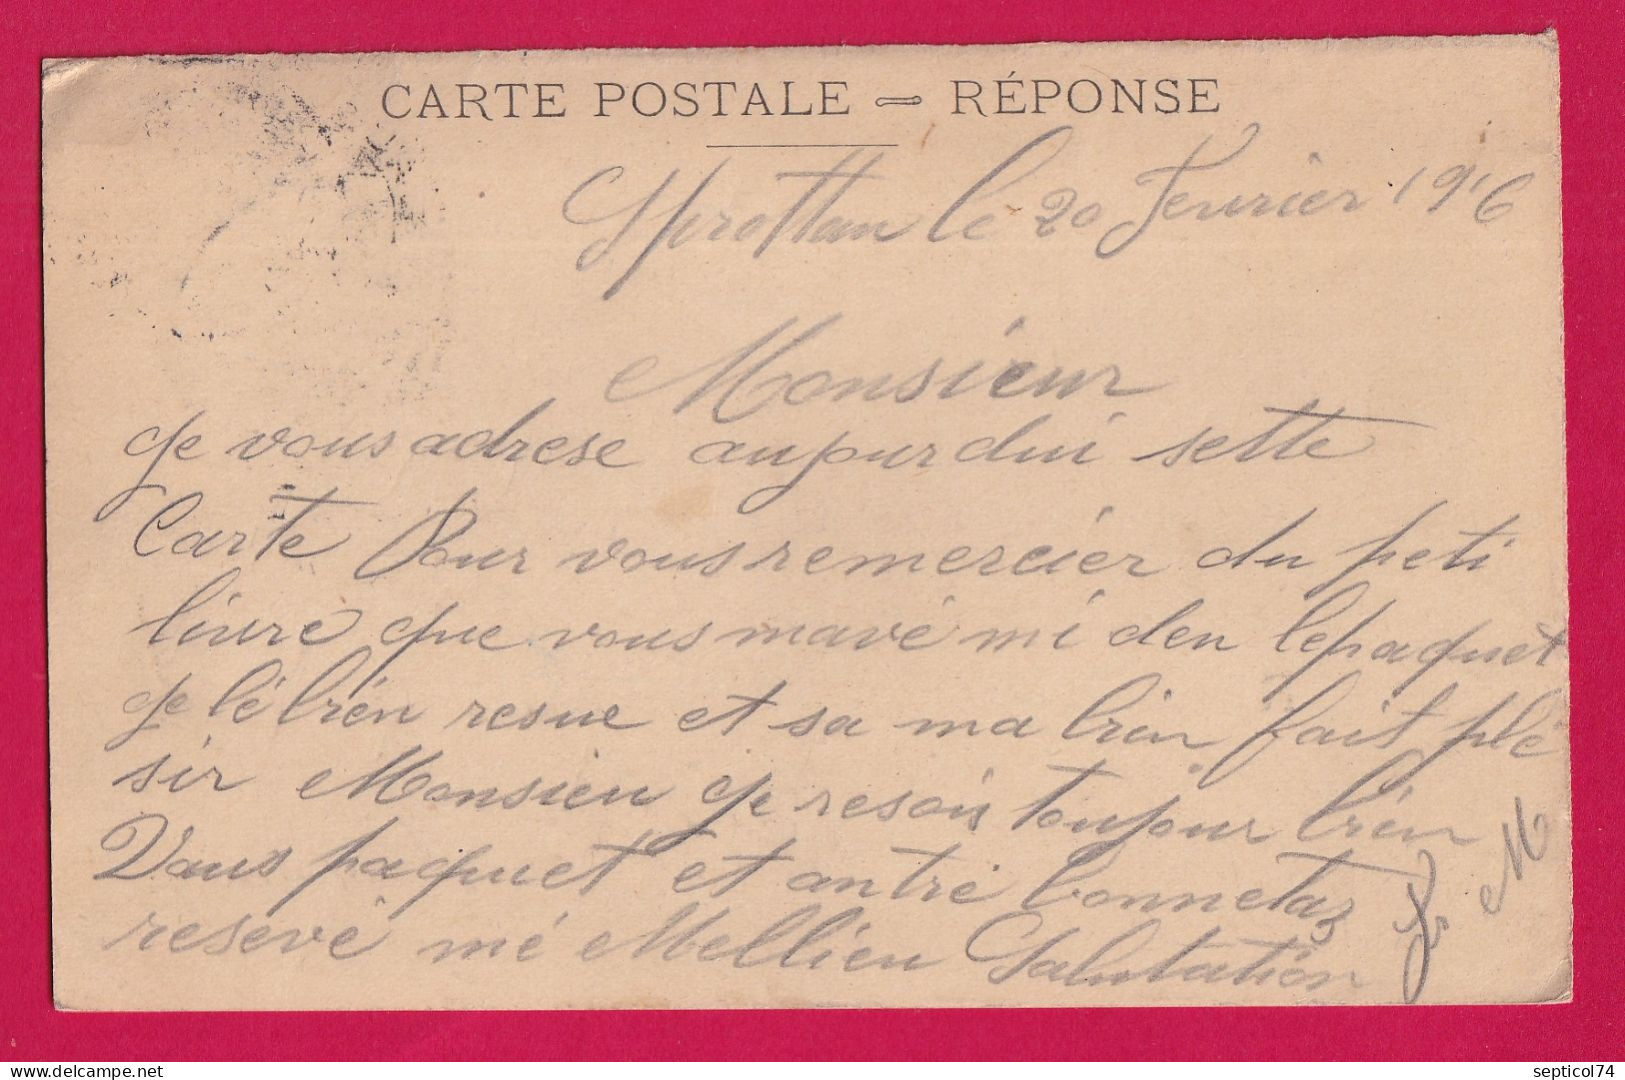 CARTE POSTALE — RÉPONSE
Sprottau le 20 Fevrier 1916
Monsieur
Je vous adrese aujourdui sette
Carte Pour vous remercier du peti
livre que vous mavé mi den lepaquet
Je lé bién resue et sa ma bien fait plé
sir Monsieur Je resois toujour bién
Vaus paquet et an tré bonneta
resevé mé Mellieu Salutation
septicol74